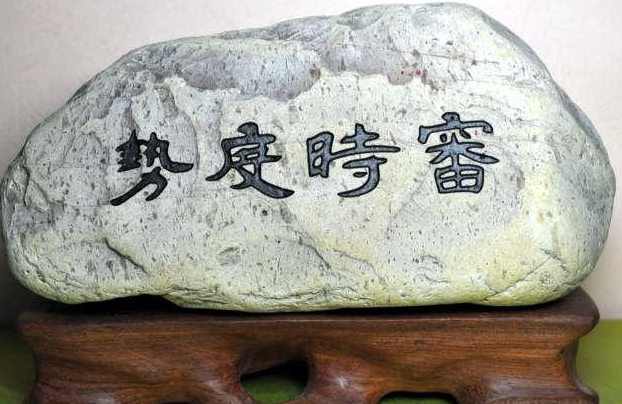 審時度勢